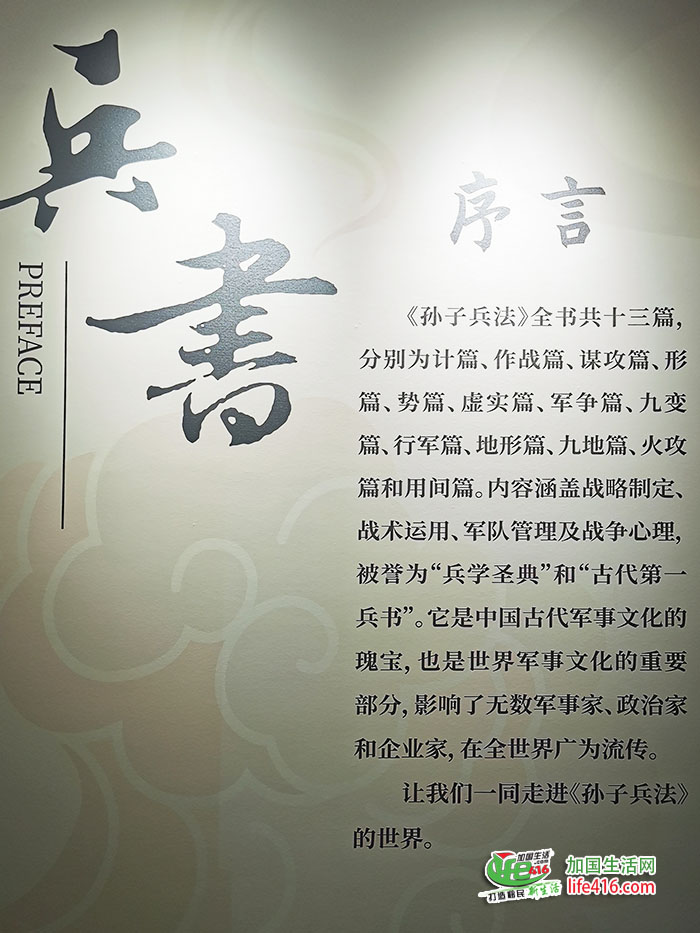 兵書
PREFACE
序言
《孙子兵法》全书共十三篇，
分别为计篇、作战篇、谋攻篇、形
篇、势篇、虚实篇、军争篇、九变
篇、行军篇、地形篇、九地篇、火攻
篇和用间篇。内容涵盖战略制定、
战术运用、军队管理及战争心理，
被誉为“兵学圣典”和“古代第一
兵书”。它是中国古代军事文化的
瑰宝，也是世界军事文化的重要
部分，影响了无数军事家、政治家
和企业家，在全世界广为流传。
让我们一同走进《孙子兵法》
的世界。
加国生活
.com
life416
打造移民新生活
加国生活网
life416.com